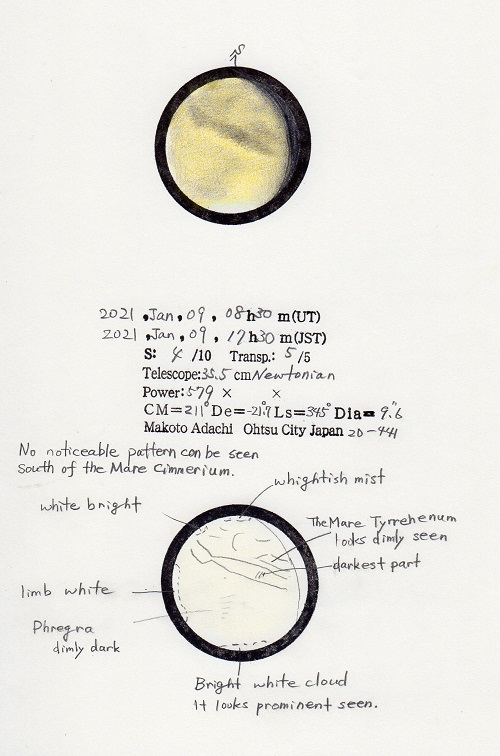 S
2021, Jan, 09, 08h30 m(UT)
2021, Jan, 09, 17h30 m(JST)
S: 4 /10 Transp.: 5 /5
Telescope:35.5 cm Newtonian
Power:579 × ×
CM=211° De=-21.7 Ls=345° Dia=9."6
Makoto Adachi Ohtsu City Japan 20-441
No noticeable pattern can be seen
south of the Mare Cimmerium.
whightish mist
white bright
The Mare Tyrrehenum
looks dimly seen
darkest part
limb white
Phregra
dimly dark
Bright white cloud
It looks prominent seen.